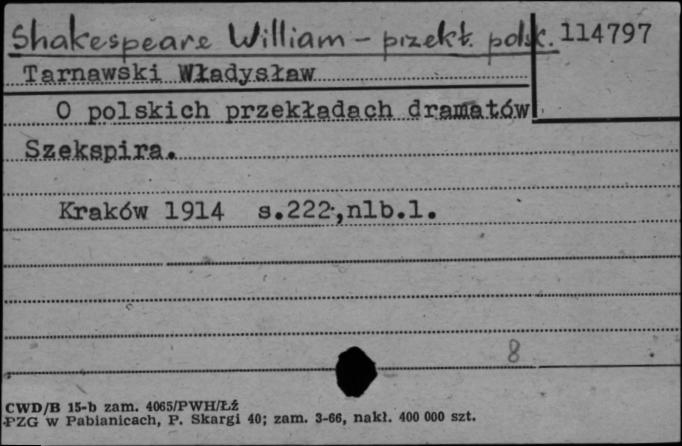 Shakespeare William – przekł. polsk. 114797
Tarnawski Władysław
O polskich przekładach dramatów
Szekspira.
Kraków 1914 s.222,nlb.1.
8
CWD/B 15-b zam. 4065/PWH/Łź
PZG w Pabianicach, P. Skargi 40; zam. 3-66, nakł. 400 000 szt.